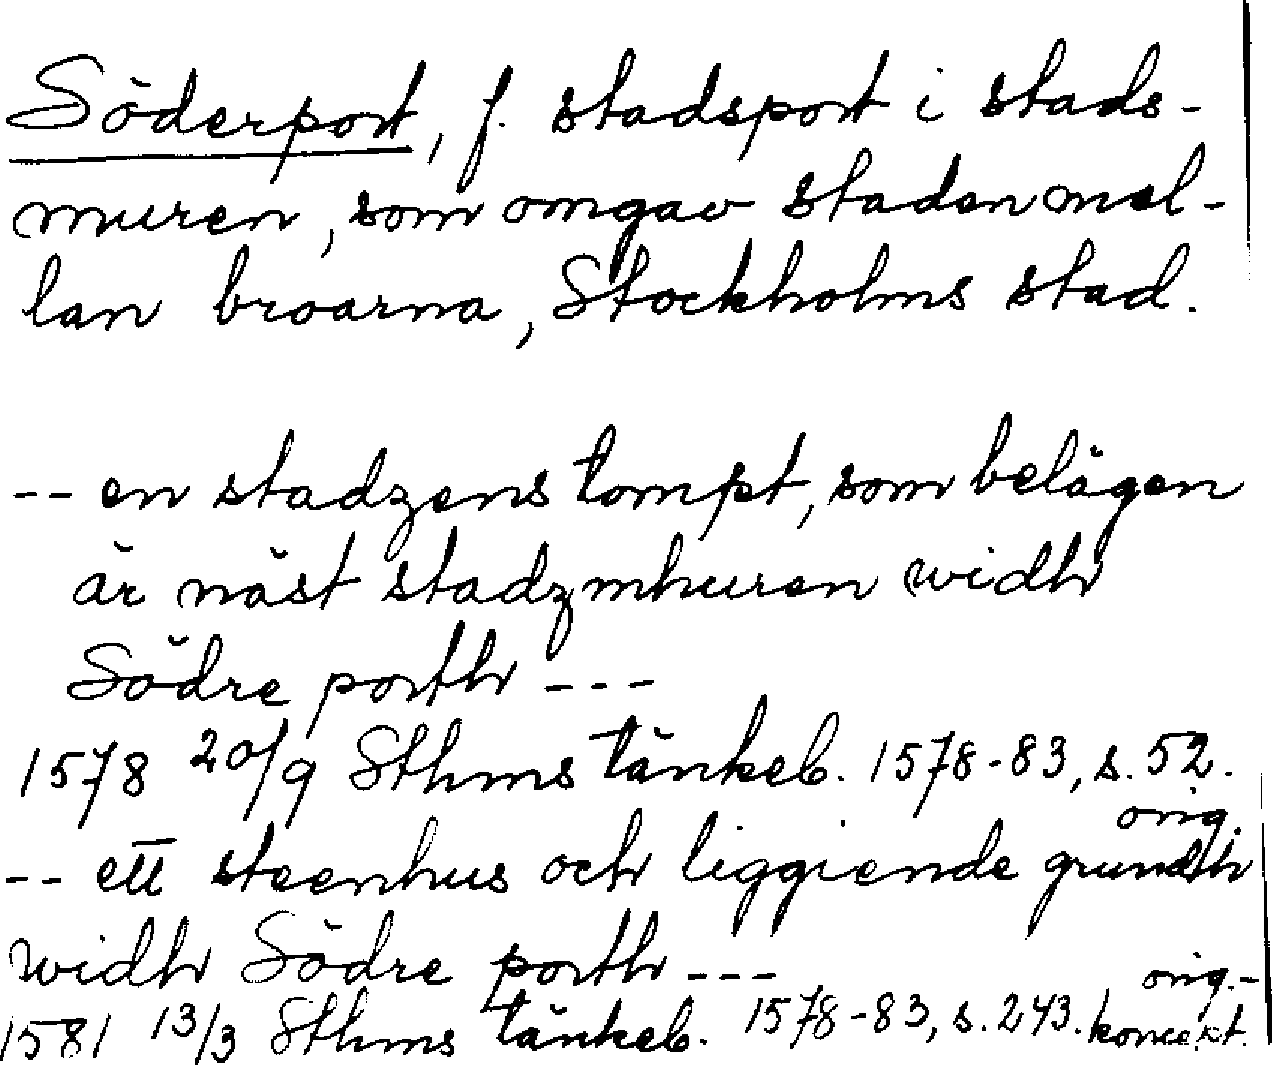 Söderport, f. stadsport i stads-
muren, som omgav staden mel-
lan broarna, Stockholms stad.
-- en stadzens tompt, som belägen
är näst stadzmhuren widh
Södre porth ---
1578 20/9 Sthms tänkeb. 1578-83, s. 52.
orig.
-- ett steenhus och liggiende grundh
widh Södre porth ---
orig.-
1581 13/3 Sthms tänkeb. 1578-83, s. 243. koncept.